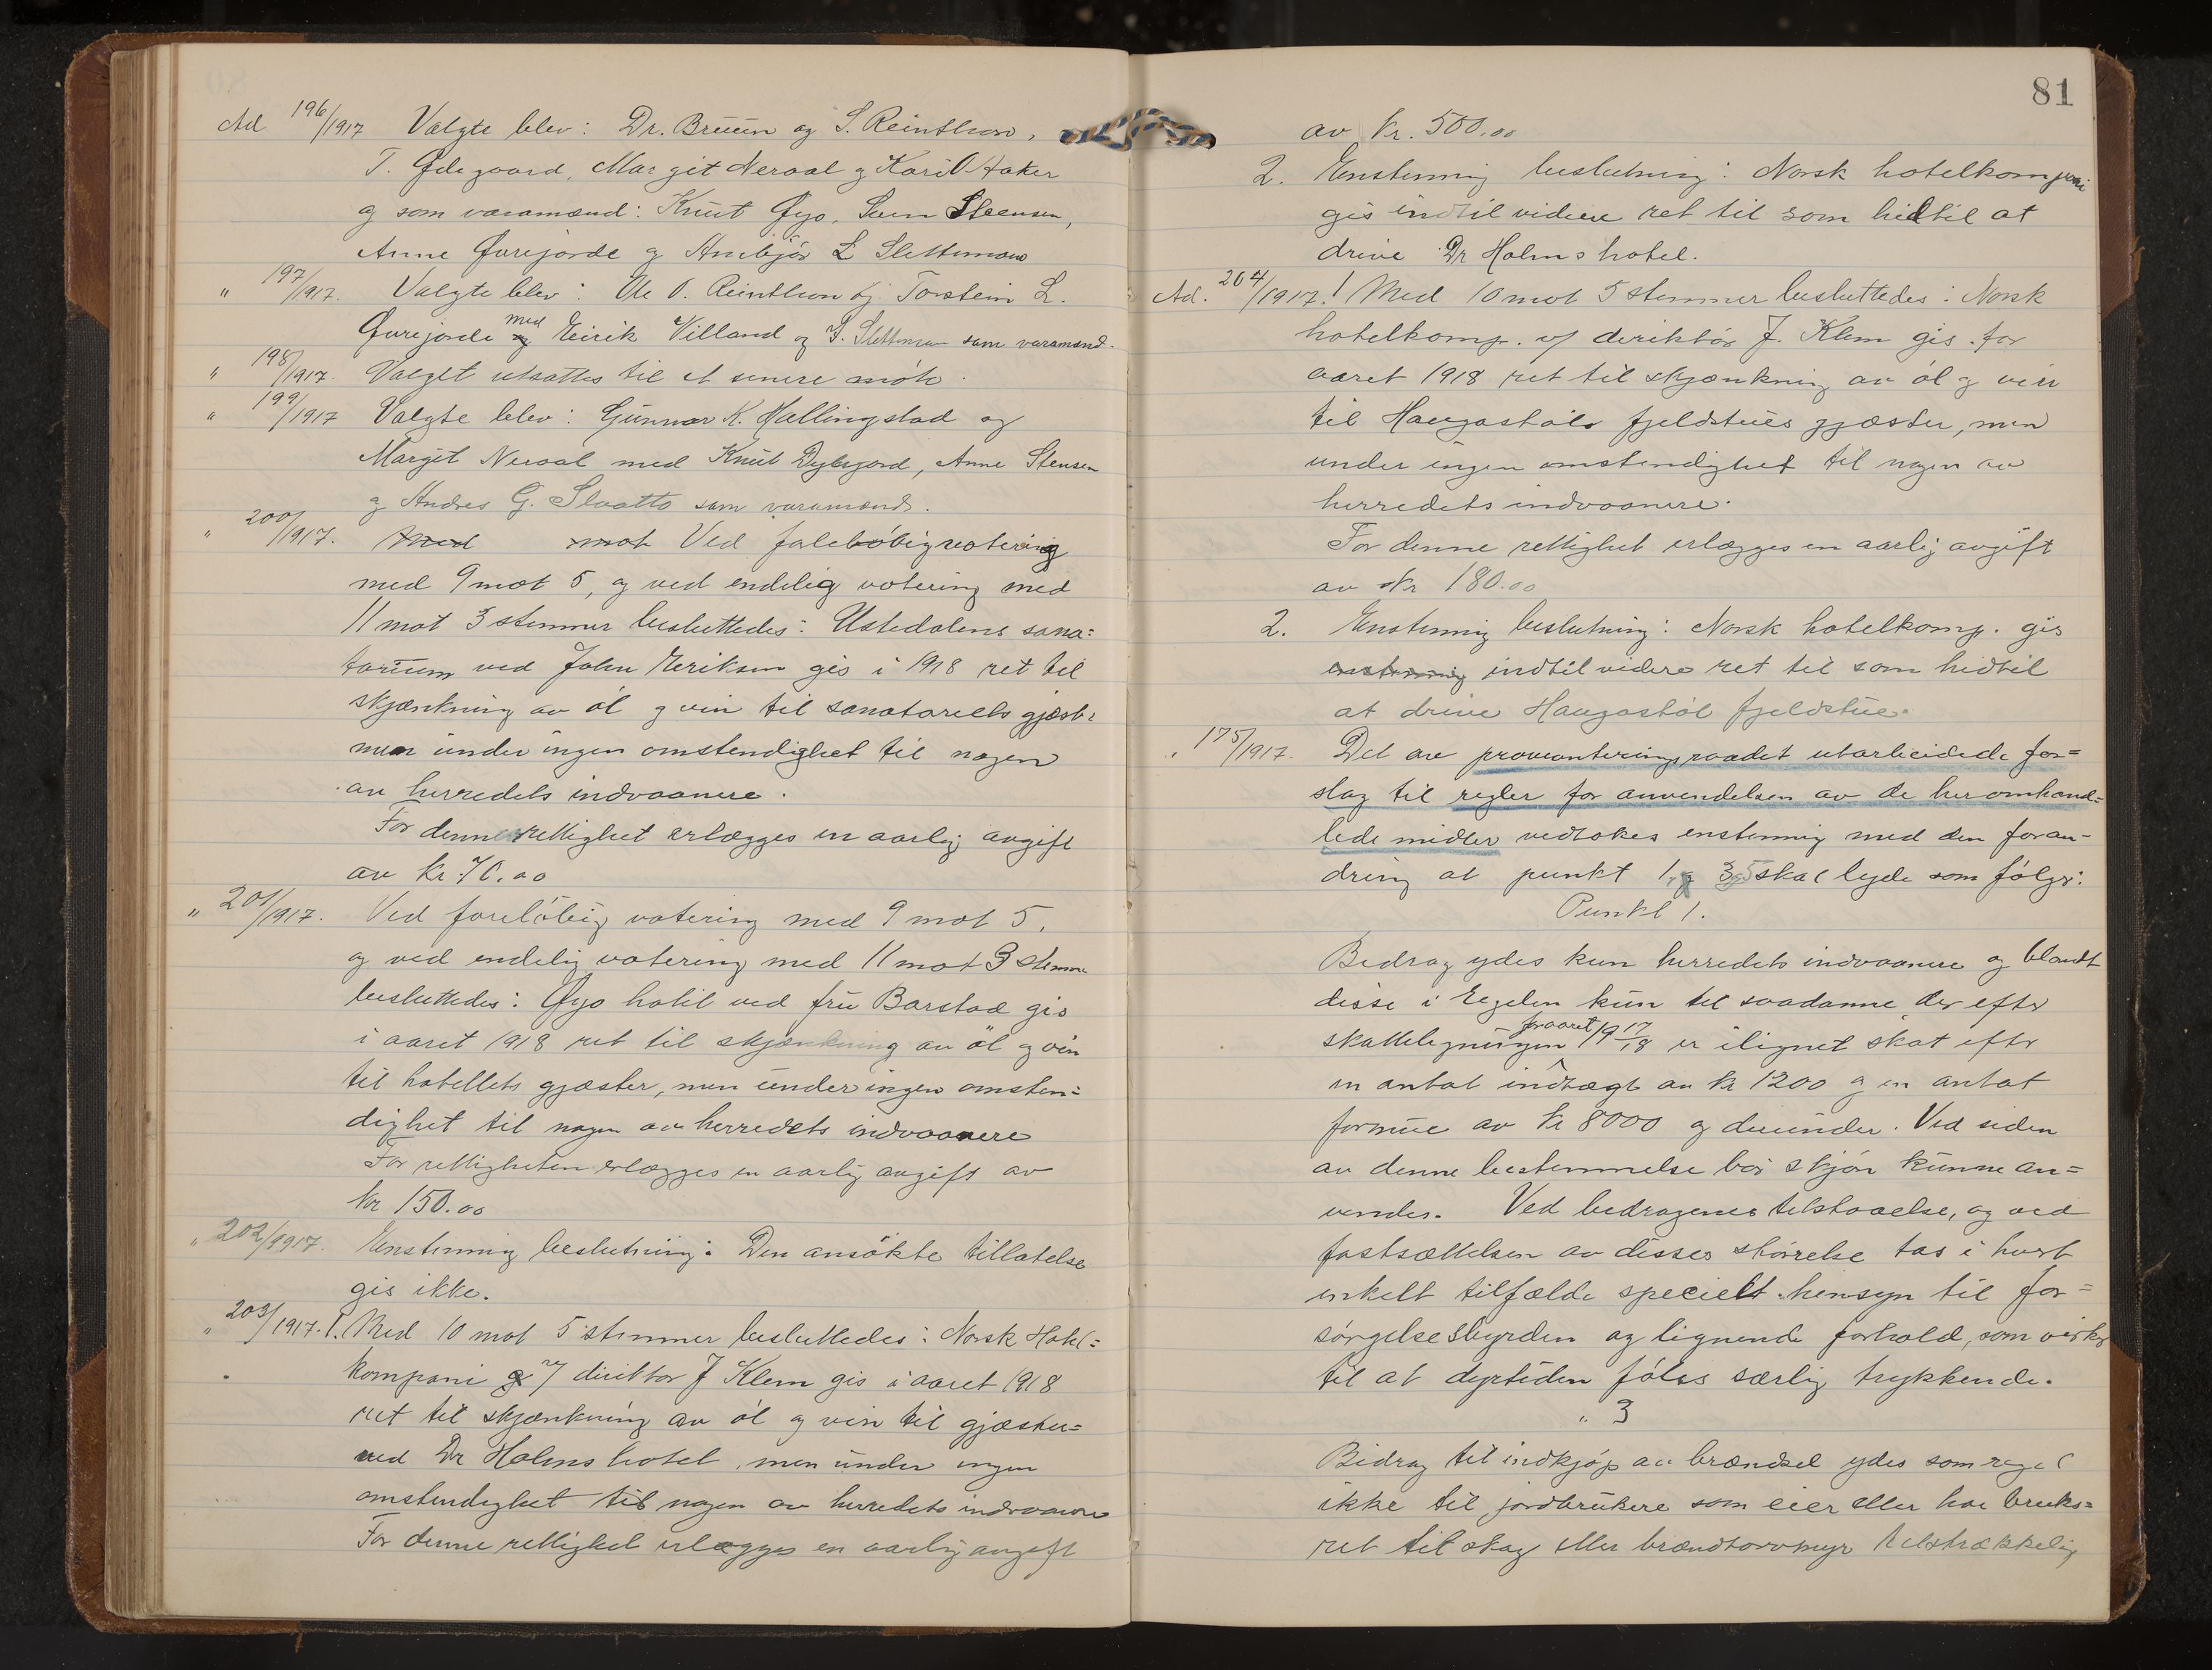 Ad 196/1917 Valgte blev: Dr. Bruun og S. Reinthon,
T. Ødegaard, Margit Neraal og Kari O Haker
og som varamænd: Knut Øyo, Steensen,
Anne Ourejorde og Arnbjør L Slettemoen
" 197/1917. Valgte blev: Ole O. Reinthon og Torstein L.
Furejorde med Eirik Villand og S. Slettemoen som varamænd.
" 198/1917. Valget utsattes til et senere møte.
" 199/1917 Valgte blev: Gunnar K. Hallingstad og
Margit Neraal med Knut Dybsjord, Anne Stensen
og Andres G. Slaatto som varamænd.
" 200/1917. Med mot Ved foreløbig votering
med 9 mot 5, og ved endelig votering med
11 mot 3 stemmer besluttedes: Ustedalens sana=
torium ved John Eeriksen gis i 1918 ret til
skjænkning av øl og vin til sanatoriets gjæster
men under ingen omstendighet til nogen
av herredets indvaanere.
For denne rettighet erlægges en aarlig avgift
av kr 70.00
" 201/1917. Ved foreløbig votering med 9 mot 5,
og ved endelig votering med 11 mot 3 stemmer
besluttedes: Øyo hotil ved fru Barstad gis
i aaret 1918 ret til skjænkning av øl og vin
til hotellets gjæster, men under ingen omsten=
dighet til nogen av herredets indvaanere
For rettigheten erlægges en aarlig avgift av
kr 150.00
" 202/1917. Enstemmig beslutning: Den ansøkte tillatelse
gis ikke.
" 203/1917. 1. Med 10 mot 5 stemmer besluttedes: Norsk Hotel=
kompani v/ direktør J Klem gis i aaret 1918
ret til skjænkning av øl og vin til gjæster=
ved Dr Holms hotel, men under ingen
omstendighet til nogen av herredets indvaanere
For denne rettighet erlægges en aarlig avgift
81
av kr. 500.00
2. Enstemmig beslutning: Norsk hotelkompani
gis indtil videre ret til som hidtil at
drive Dr Holms hotel.
Ad. 204/1917. 1 Med 10 mot 5 stemmer besluttedes: Norsk
hotelkomp. v/ deriktør J. Klem gis for
aaret 1918 ret til skjænkning av øl og vin
til Haugastøls fjeldstues gjæster, men
under ingen omstendighet til nogen av
herredets indvaanere.
For denne rettighet erlægges en aarlig avgift
av kr 180.00
2. Enstemmig beslutning: Norsk hotelkomp. gis
enstemmig indtil videre ret til som hidtil
at drive Haugastøl fjeldstue.
" 175/1917. Det av provianteringsraadet utarbeidede for=
slag til regler for anvendelsen av de her omhand=
lede midler vedtokes enstemmig med den foran-
dring at punkt 1, 3 og 5 skal lyde som følger:
Punkt 1.
Bedrag ydes kun herredets indvaanere og blandt
disse i regelen kun til saadanne der efter
skattelegningen for aaret 1917/18 er ilignet skat efter
en antat indtægt av kr 1200 og en antat
formue av kr 8000 og derunder. Ved siden
av denne bestemmelse bør skjøn kunne an=
vendes. Ved bedragenes tilstaaelse, og ved
fastsættelsen av disses størrelse tas i hvert
enkelt tilfælde specielt hensyn til for=
sørgelsesbyrden og lignende forhold, som virker
til at dyrtiden føles særlig trykkende.
" 3
Bidrag til indkjøp av brændsel ydes som regel
ikke til jordbrukere som eier eller har bruks=
ret til skog eller brændtorvmyr tilstrækkelig